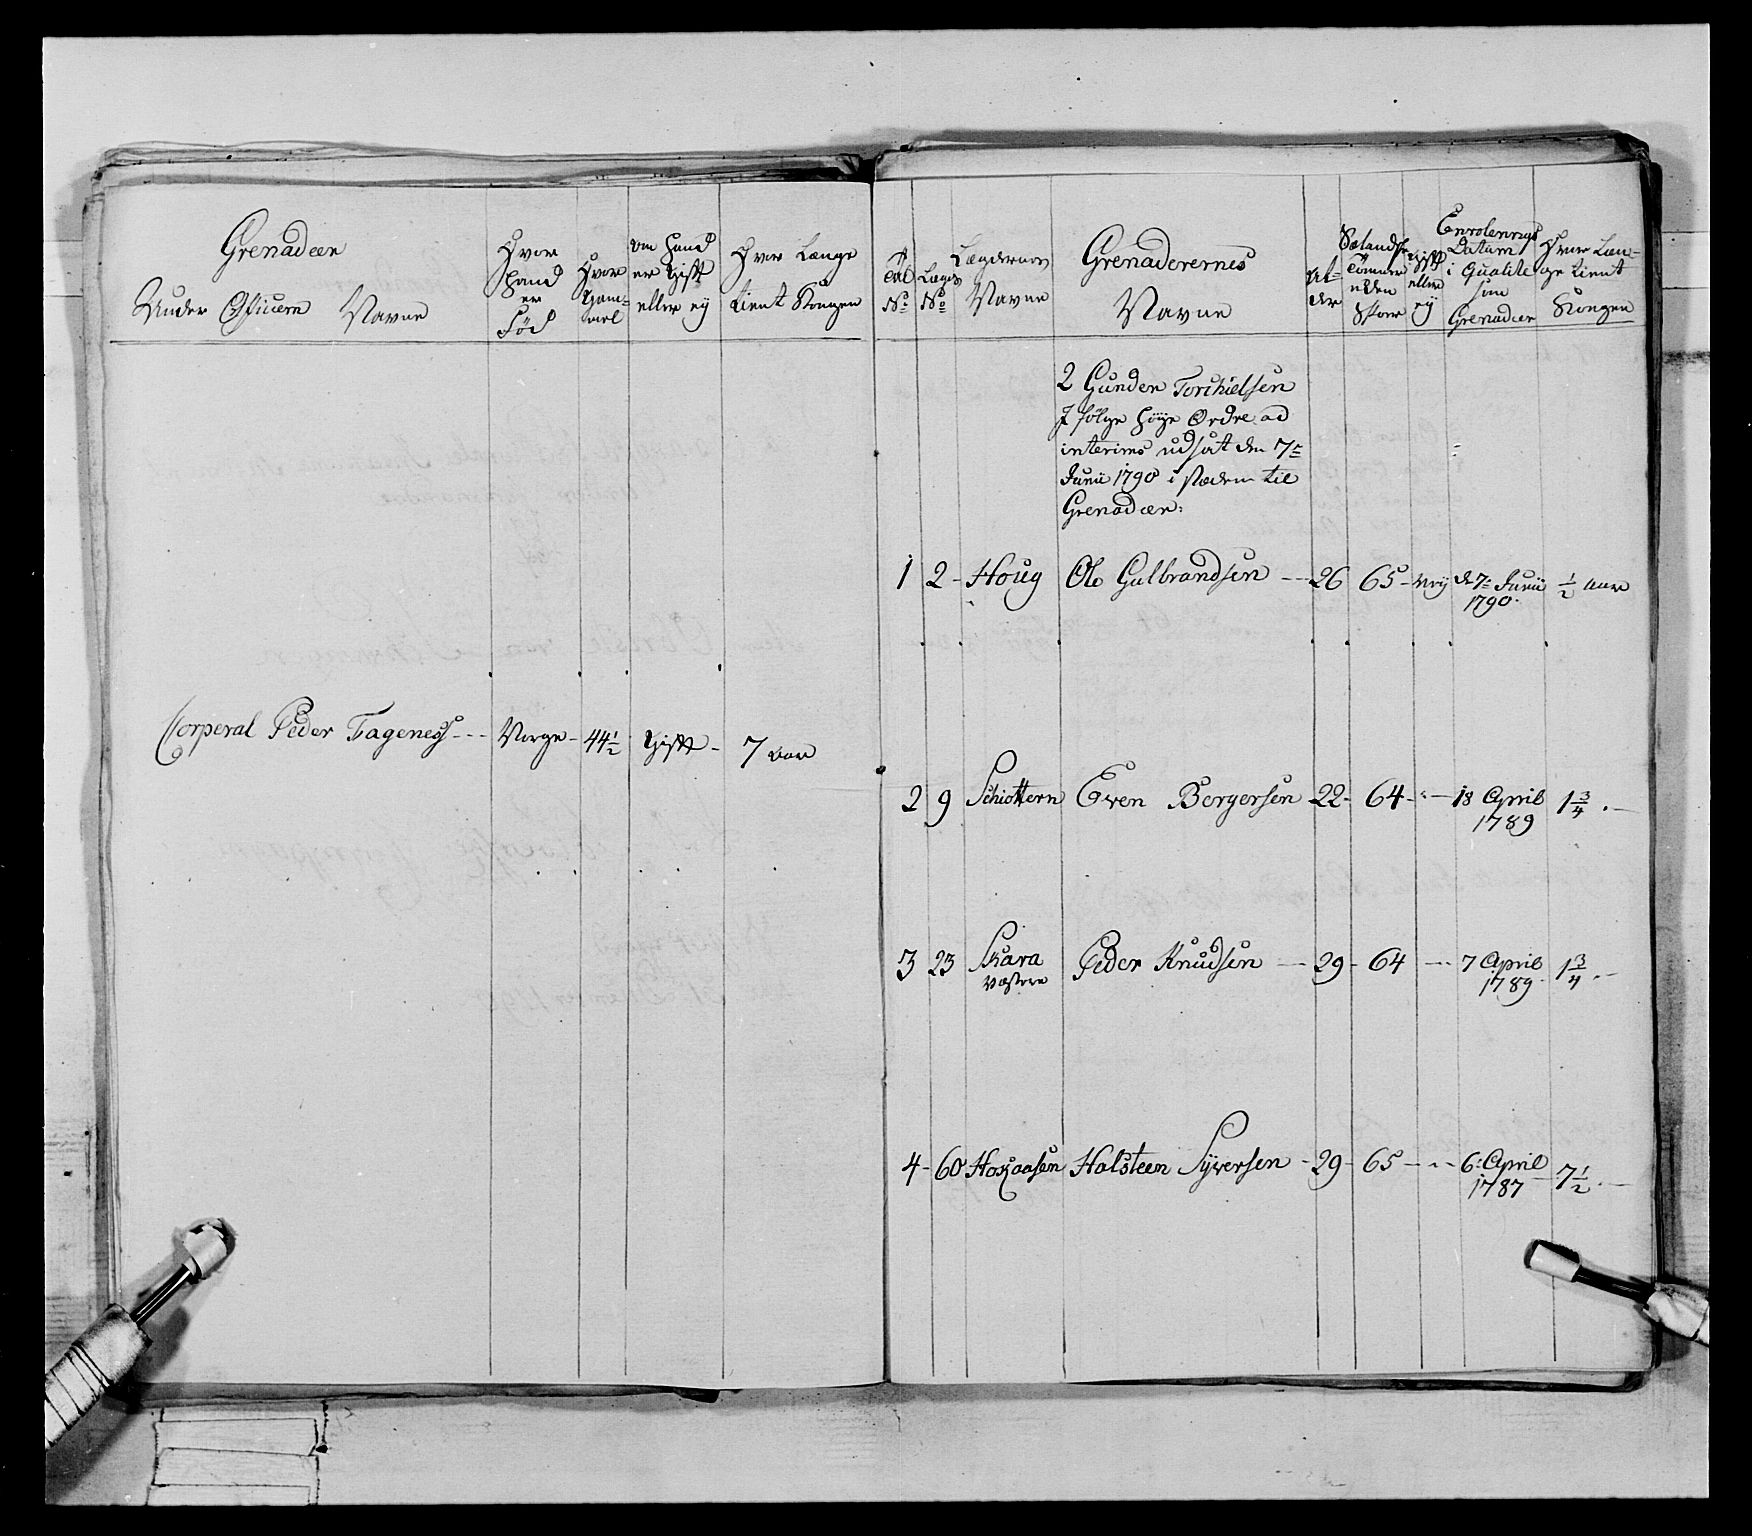 Grenadeer
Under Officeern Navne
Hvor
Hand
er
Fød
Hvor
Gam-
mel
om Hand
er Gift
eller ey
Hvor Længe
tient Kongen
Corperal Peder Fagenes --- Norge - 44½ Gift - 7 aar
Tal
No
Lægds
No
Lægdernes
Navne
Grenaderernes
Navne
Al-
der
Sælandske
Tommer
uden
Skoer
Gift
eller
ey
Enrolerings
Datum
i Qualite
som
Grenadeer
Hvor Læn-
ge tient
Kongen
2 Gunder Torchielsen
I følge høye Ordre ad
interims udsat den 7de
Junii 1790 i stæden til
Grenadeer:
1 2 - Houg Ole Gulbrandsen --- 26 65 - ey d 7de Junii ½ aar
1790.
2 9 Schiøttern Even Bergersen 22 - 64 - " - 18 April 1¾ " -
1789
3 23 Skara Peder Knudsen --- 29 - 64 --- 7 April 1¾ " -
Vestere 1789
4 - 60 Halsteen Syversen - 29 - 65 - " - 6: April 7½ " -
1787